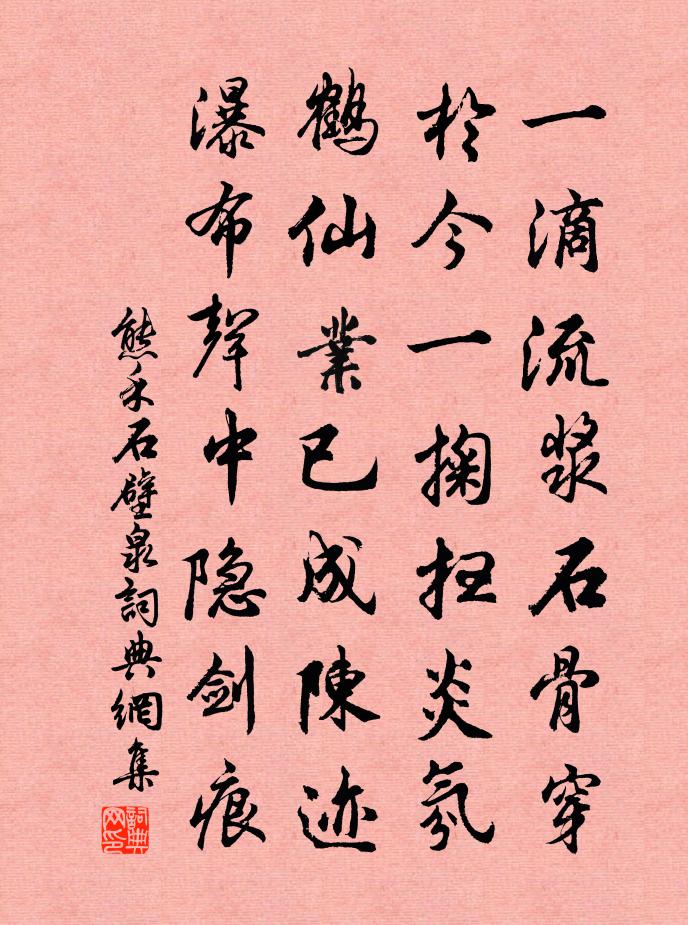 一滴流漿石骨穿
於今一掬扫炎氛
鶴仙業已成陳迹
瀑布聲中隐剑痕
熊禾石壁泉詞典網集
詞典网印